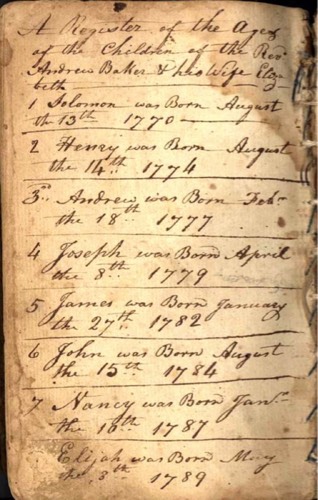 A Register of the Ages
of the Children of the Revd
Andrew Baker & his Wife Eliza
beth
1 Solomon was Born August
the 13th 1770
2 Henry was Born August
the 14th 1774
3d Andrew was Born Febr
the 18th 1777
4 Joseph was Born April
the 8th 1779
5 James was Born January
the 27th 1782
6 John was Born August
the 15th 1784
7 Nancy was Born Janr
the 16th 1787
Elijah was Born May
the 8th 1789